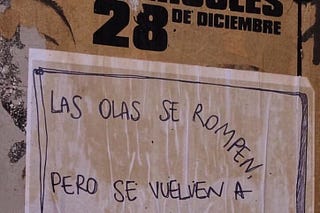 28 DE DICIEMBRE
LAS OLAS SE ROMPEN,
PERO SE VUELVEN A